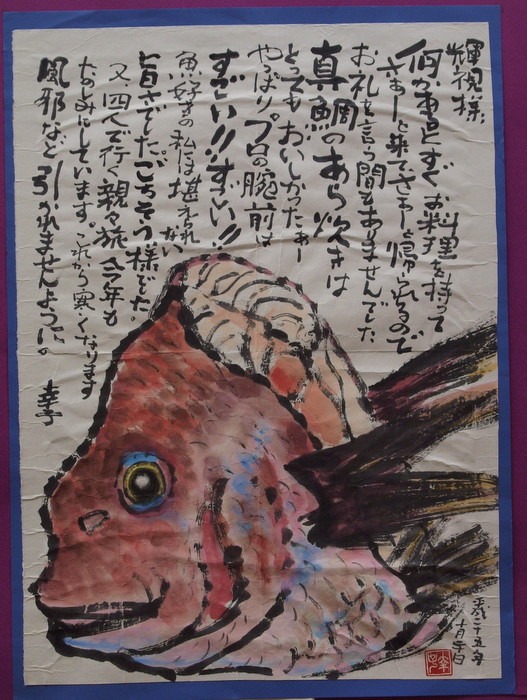 輝視様、
何か事、とすぐ お料理を持って
さぁーと来てさぁーと帰られるので
お礼を言う間もありませんでした
真鯛のあら炊きは
とってもおいしかったぁー
やっぱり。プロの腕前は
すごい!!すごい!!
魚好きの私には堪えられない
旨さでした。ごちそう様でした。
又、四人で行く親々旅 今年も
たのしみにしています。これから寒くなります
風邪など引かれませんように。
幸子
平成二十五年
十月